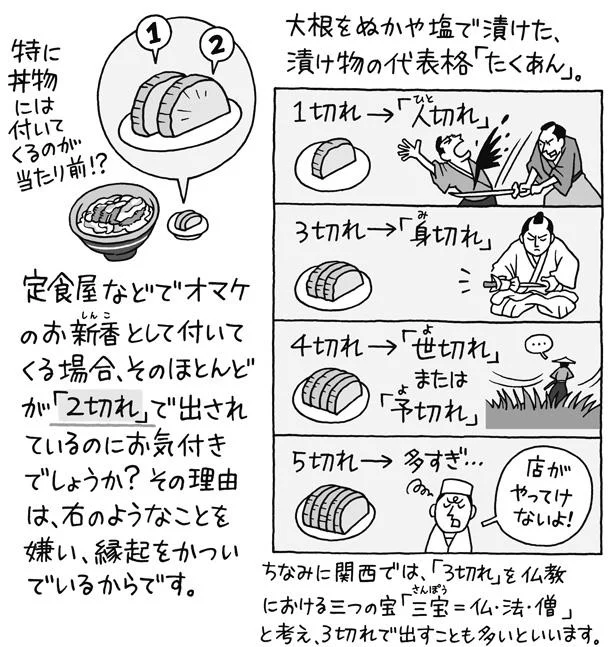 大根をぬかや塩で漬けた、
漬け物の代表格「たくあん」。
特に
丼物
には
付いて
くるのが
当たり前!?
1
2
定食屋などでオマケ
のお新香として付いて
しんこ
くる場合、そのほとんど
が「2切れ」で出され
ているのにお気付き
でしょうか?その理由
は、右のようなことを
嫌い、縁起をかつい
でいるからです。
1切れ→「人切れ」
ひと
3切れ→「身切れ」
み
4切れ→「世切れ」
よ
または
「予切れ」
よ
…
5切れ→多すぎ…
店が
やってけ
ないよ!
ちなみに関西では、「3切れ」を仏教
における三つの宝「三宝=仏・法・僧」
さんぽう
と考え、3切れで出すことも多いといいます。